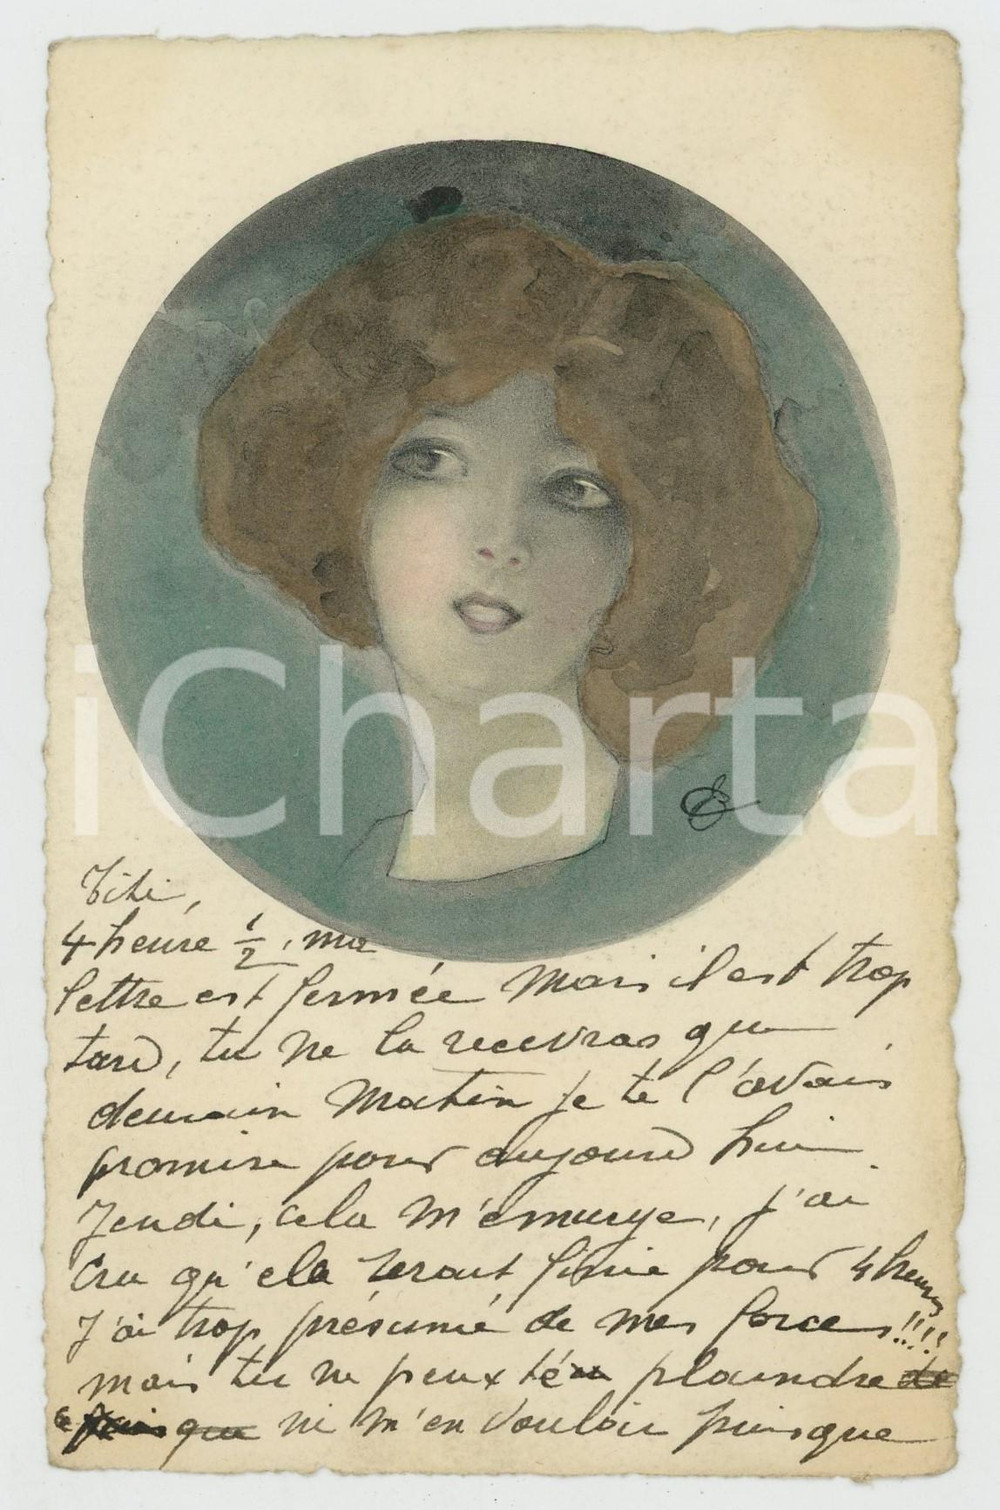 iCharta
Titi,
4 heure 1/2, ma
lettre est fermée Mais il est trop
tard, tu ne la recevras que
demain Matin je te l'avais
promise pour aujourd hui
Jeudi, cela m'ennuye, j'ai
cru qu'ele serait finie pour 4 heures
J'ai trop présumé de mes forces!!!!
mais tu ne peux te plaindre
que ni m'en vouloir puisque